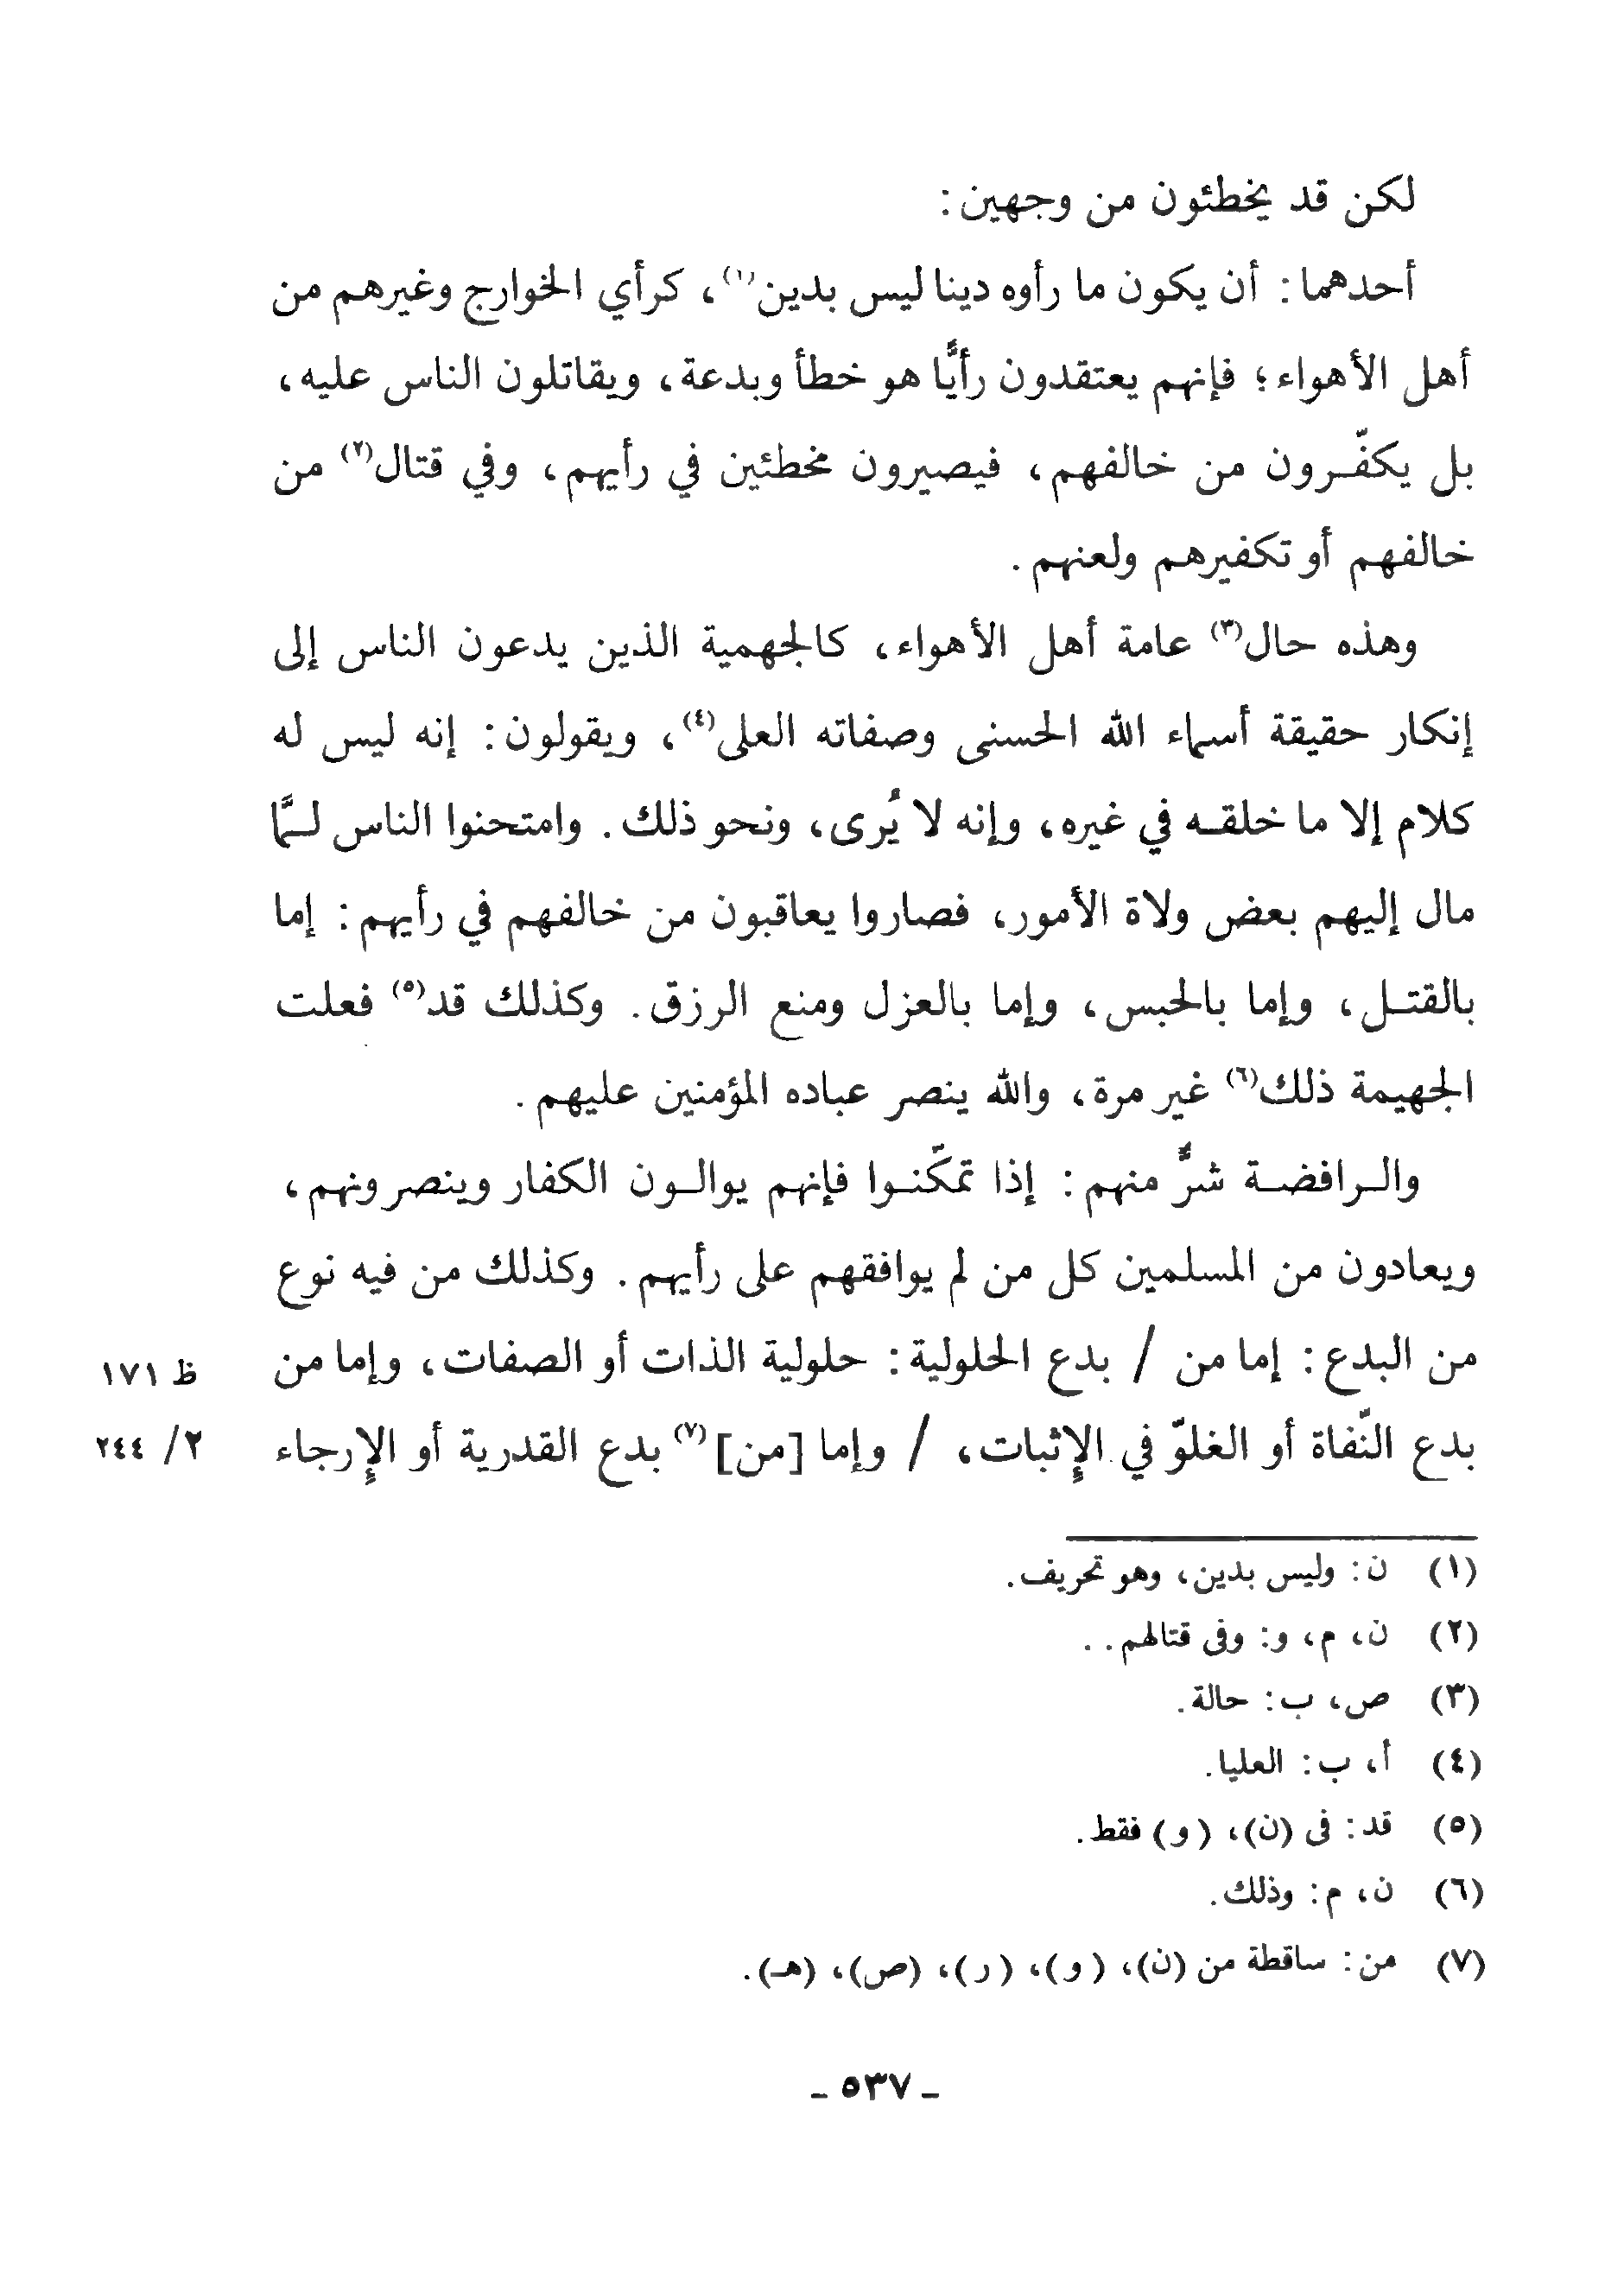 لكن قد يخطئون من وجهين :
أحدهما : أن يكون ما رأوه دينا ليس بدين(١)، كرأي الخوارج وغيرهم من
أهل الأهواء؛ فإنهم يعتقدون رأيًا هو خطأ وبدعة، ويقاتلون الناس عليه،
بل يكفّـرون من خالفهم، فيصيرون مخطئين في رأيهم، وفي قتال(٢) من
خالفهم أو تكفيرهم ولعنهم .
وهذه حال(٣) عامة أهل الأهواء، كالجهمية الذين يدعون الناس إلى
إنكار حقيقة أسماء الله الحسنى وصفاته العلى(٤)، ويقولون : إنه ليس له
كلام إلا ما خلقـه في غيره، وإنه لا يُرى، ونحو ذلك . وامتحنوا الناس لـمَّا
مال إليهم بعض ولاة الأمور، فصاروا يعاقبون من خالفهم في رأيهم : إما
بالقتـل، وإما بالحبس، وإما بالعزل ومنع الرزق . وكذلك قد(٥) فعلت
الجهيمة ذلك(٦) غير مرة، والله ينصر عباده المؤمنين عليهم .
والـرافضـة شرٌّ منهم : إذا تمكّنـوا فإنهم يوالـون الكفار وينصرونهم،
ويعادون من المسلمين كل من لم يوافقهم على رأيهم . وكذلك من فيه نوع
من البدع : إما من / بدع الحلولية : حلولية الذات أو الصفات، وإما من ظ ١٧١
بدع النّفاة أو الغلوّ في الإثبات، / وإما [من](٧) بدع القدرية أو الإرجاء ٢/ ٢٤٤
(١) ن : وليس بدين، وهو تحريف .
(٢) ن، م، و: وفى قتالهم . .
(٣) ص، ب : حالة .
(٤) أ، ب : العليا .
(٥) قد : فى (ن)، (و) فقط .
(٦) ن، م : وذلك .
(٧) من : ساقطة من (ن)، (و)، (ر)، (ص)، (هـ) .
ـ ٥٣٧ ـ